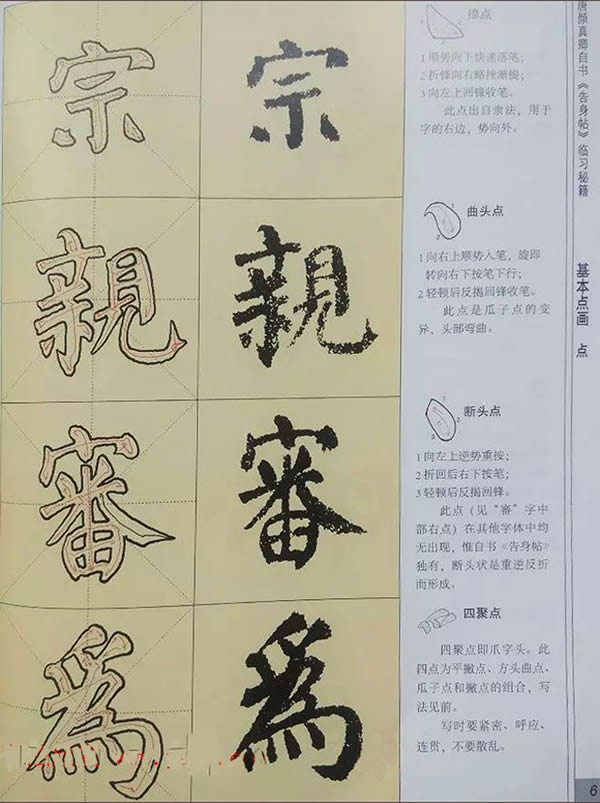 宗 宗
捺点
1 顺势向下快速落笔；
2 折锋向右略挫渐提；
3 向左上回锋收笔。
此点出自隶法，用于
字的右边，势向外。
親 親
曲头点
1 向右上顺势入笔，旋即
转向右下按笔下行；
2 轻顿后反揭回锋收笔。
此点是瓜子点的变
异，头部弯曲。
審 審
断头点
1 向左上逆势重按；
2 折回后右下按笔；
3 轻顿后反揭回锋。
此点（见“審”字中
部右点）在其他字体中均
无出现，惟自书《告身帖》
独有，断头状是重逆反折
而形成。
為 為
四聚点
四聚点即爪字头。此
四点为平撇点、方头曲点、
瓜子点和撇点的组合，写
法见前。
写时要紧密、呼应、
连贯，不要散乱。
唐颜真卿自书《告身帖》临习秘籍
基本点画 点
6